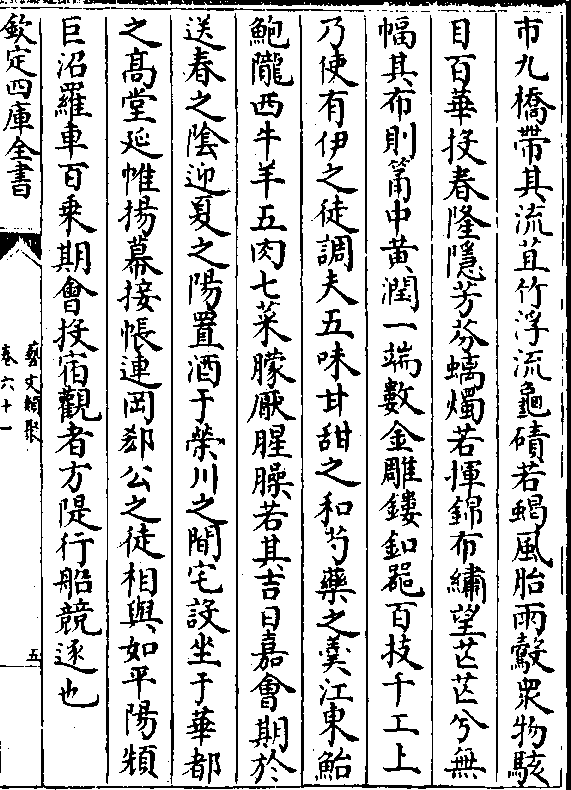 市九橋帶其流苴竹浮流龜磧若蝎風胎雨鷇眾物駭
目百華投春隆隱芳芬螭燭若揮錦布繡望芒芒兮無
幅其布則筩中黄潤一端數金雕鏤釦器百技千工上
乃使有伊之徒調夫五味甘甜之和芍藥之羮江東鮐
鮑隴西牛羊五肉七菜朦厭腥臊若其吉日嘉會期於
送春之隂迎夏之陽置酒于榮川之間宅設坐于華都
之髙堂延帷揚幕接帳連岡郄公之徒相與如平陽頻
巨沼羅車百乘期會投宿觀者方隄行船競逐也
欽定四庫全書
藝文類聚
卷六十一
五